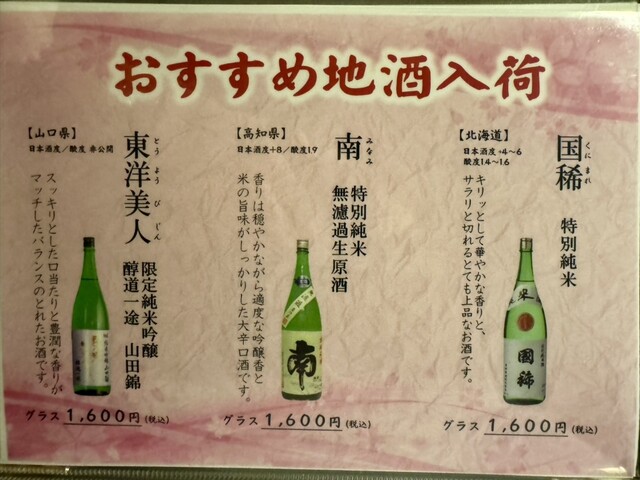 おすすめ地酒入荷
【北海道】
日本酒度 +4~6
酸度1.4~1.6
国稀
くにまれ
特別純米
キリッとして華やかな香りと、
サラリと切れるとても上品なお酒です。
國稀
グラス 1,600円(税込)
【高知県】
日本酒度+8/酸度1.9
南
みなみ
特別純米
無濾過生原酒
香りは穏やかながら適度な吟醸香と
米の旨味がしっかりした大辛口酒です。
南
グラス 1,600円(税込)
【山口県】
日本酒度/酸度 非公開
東洋美人
とうようびじん
限定純米吟醸
醇道一途 山田錦
スッキリとした口当たりと豊潤な香りが
マッチしたバランスのとれたお酒です。
グラス 1,600円(税込)